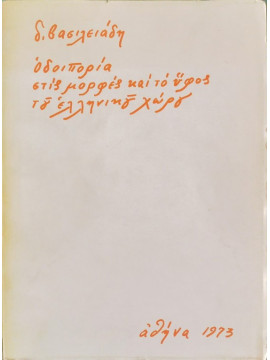 δ. βασιλειάδη
ὁδοιπορία
στὶς μορφὲς καὶ τὸ ὕφος
τοῦ ἑλληνικοῦ χώρου
ἀθήνα 1973